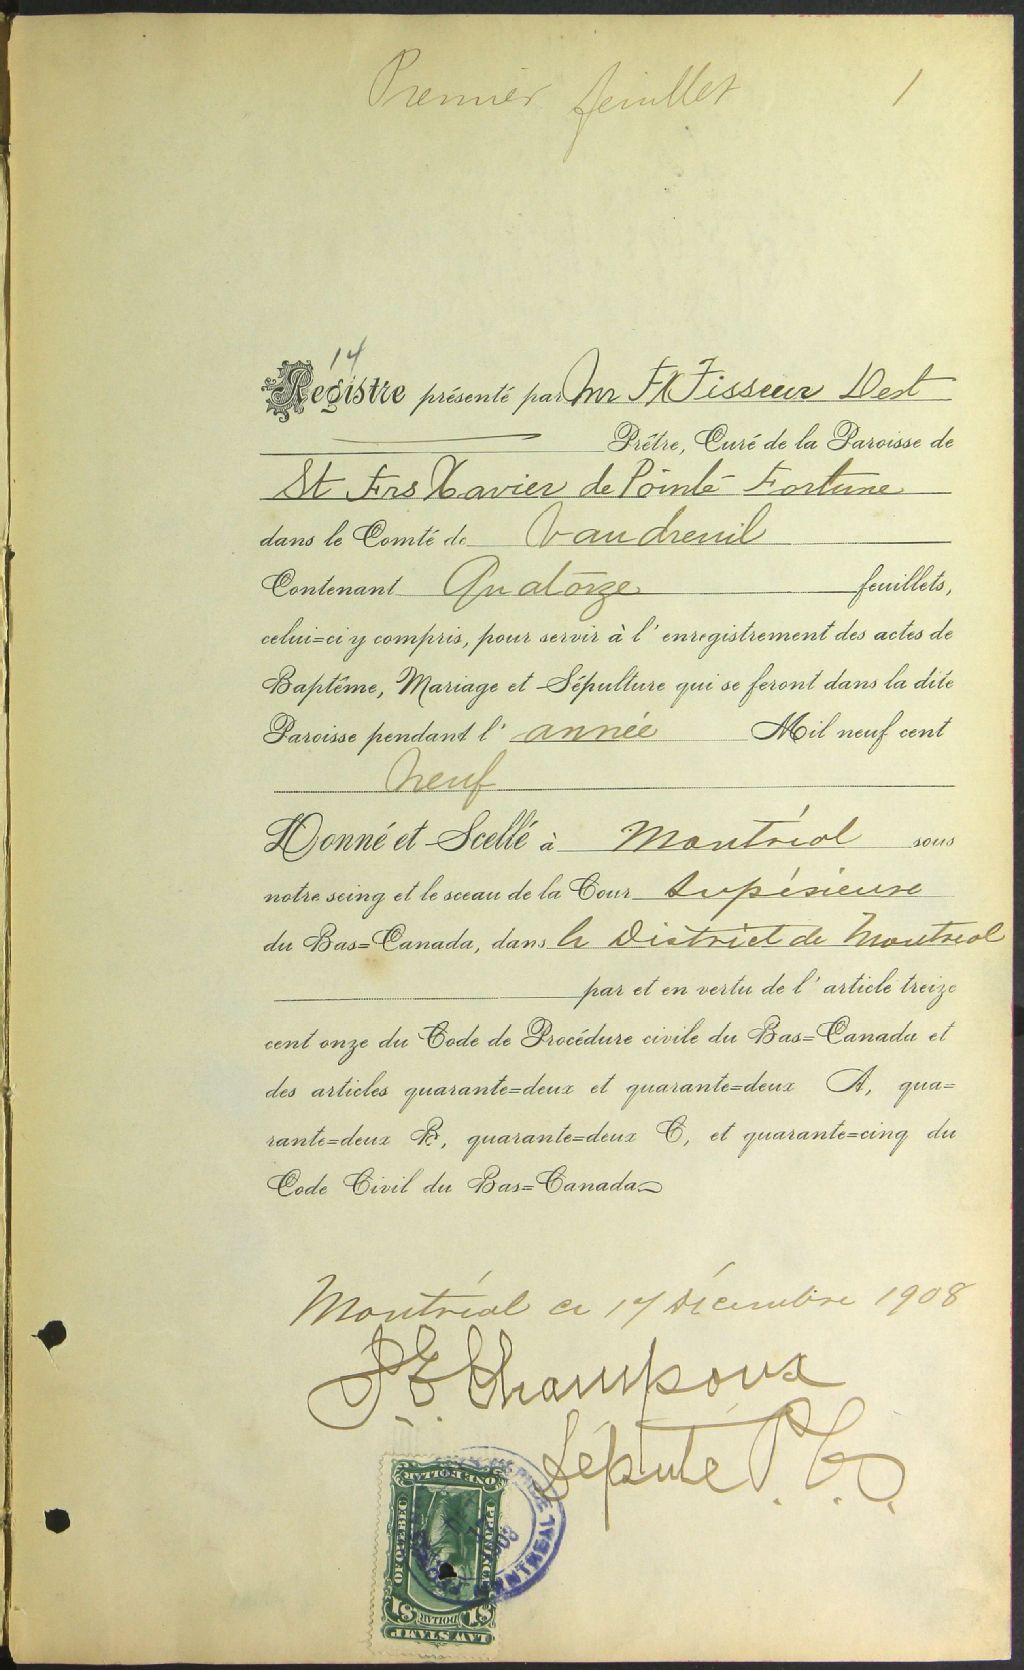 Premier feuillet 1
14
Registre présenté par Mr FX Tisseur Dest
Prêtre, Curé de la Paroisse de
St Frs Xavier de Pointe Fortune
dans le Comté de Vaudreuil
Contenant Quatorze feuillets,
celui=ci y compris, pour servir à l'enregistrement des actes de
Baptême, Mariage et Sépulture qui se feront dans la dite
Paroisse pendant l'année Mil neuf cent
neuf
Donné et Scellé à Montréal sous
notre seing et le sceau de la Cour Supérieure
du Bas=Canada, dans le District de Montreal
par et en vertu de l'article treize
cent onze du Code de Procédure civile du Bas=Canada et
des articles quarante=deux et quarante=deux A, qua=
rante=deux B, quarante=deux C, et quarante=cinq du
Code Civil du Bas=Canada
Montréal ce 17 Décembre 1908
Champoux
Député P. C. S.
ONE DOLLAR
PROVINCE
OF QUEBEC
$1 DOLLAR $1
LAW STAMP
MONTREAL